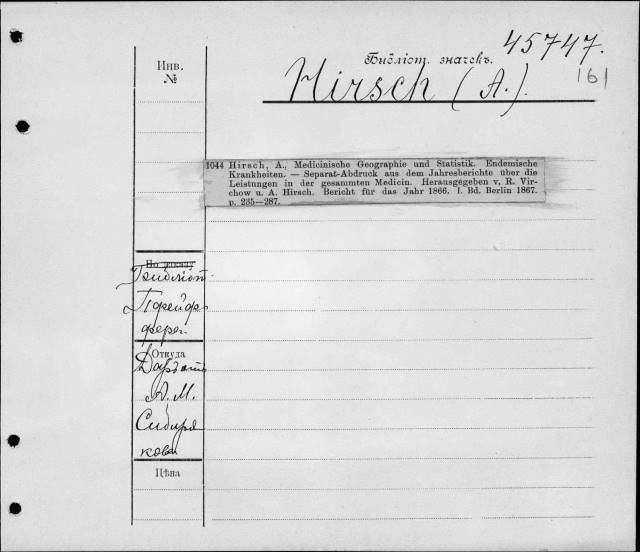 45747.
Инв.
№
Библіот. значекъ.
161
Hirsch (A.).
1044 Hirsch, A., Medicinische Geographie und Statistik. Endemische
Krankheiten. — Separat-Abdruck aus dem Jahresberichte über die
Leistungen in der gesammten Medicin. Herausgegeben v. R. Vir-
chow u. A. Hirsch. Bericht für das Jahr 1866. I. Bd. Berlin 1867.
p. 235—287.
По
Пфейф
фера.
Откуда
Даръ
А. М.
Сибиря
кова
Цѣна